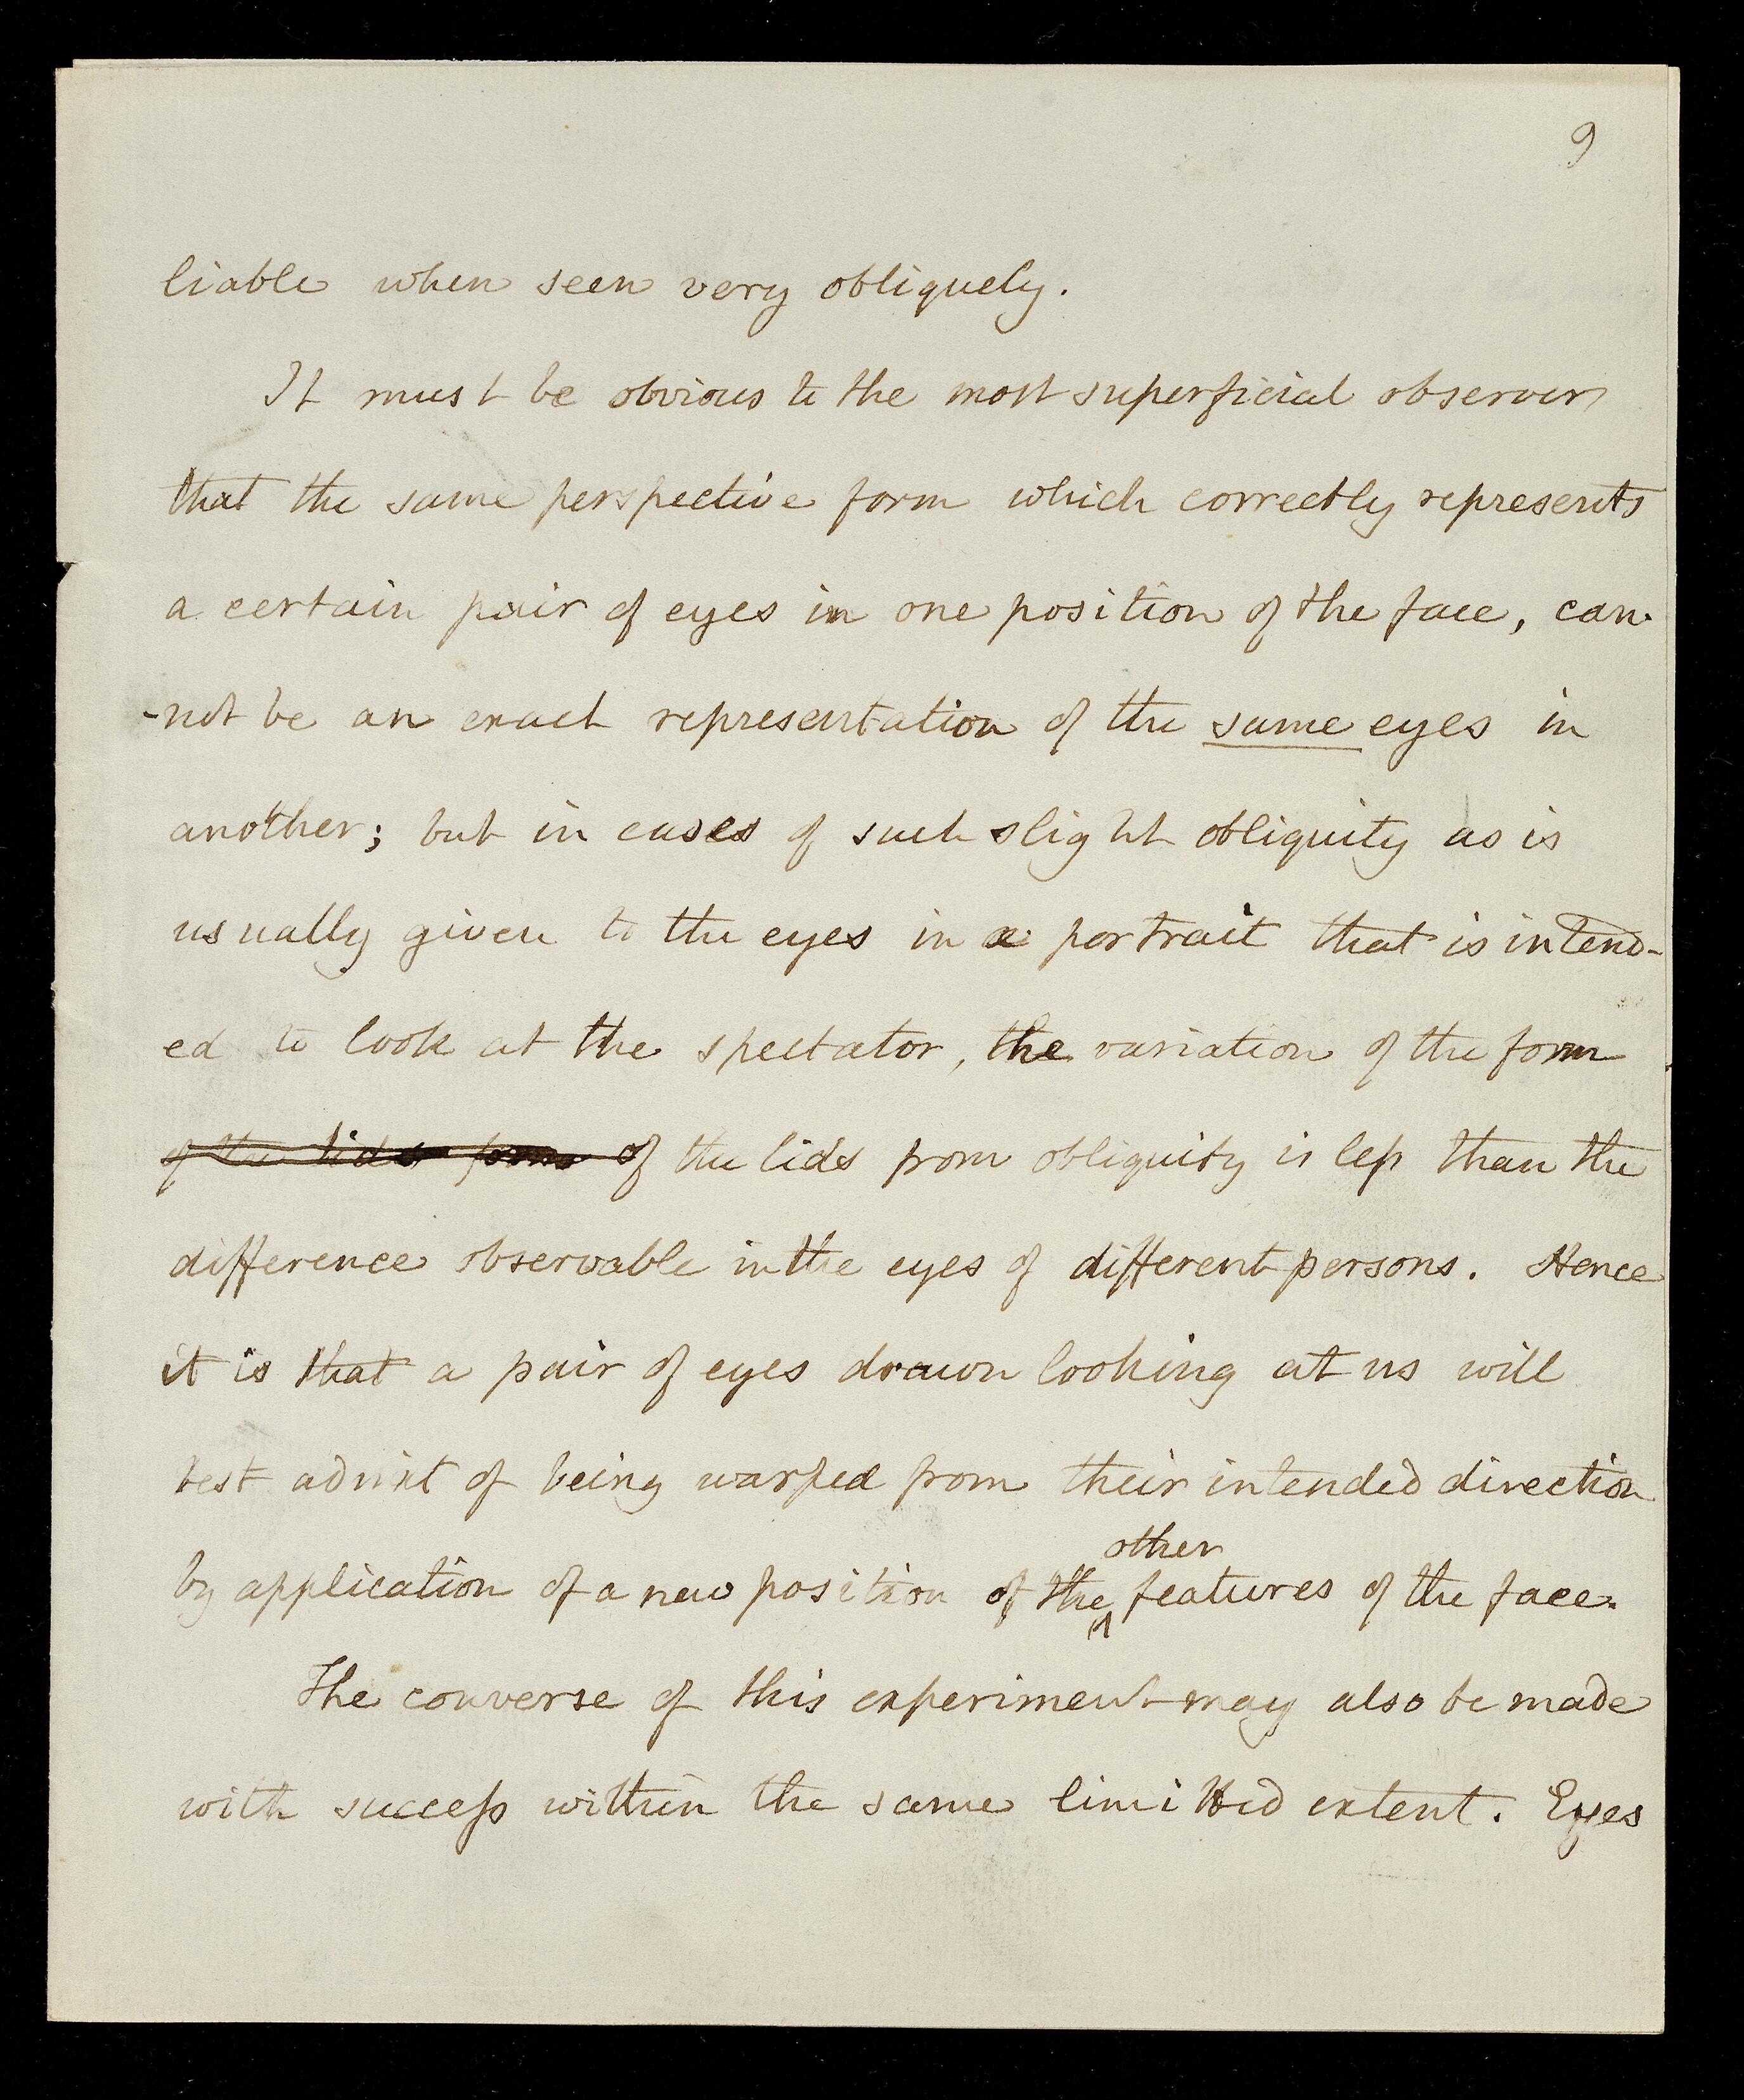 9
liable when seen very obliquely.
It must be obvious to the most superficial observer
that the same perspective form which correctly represents
a certain pair of eyes in one position of the face, can-
-not be an exact representation of the same eyes in
another; but in cases of such slight obliquity as is
usually given to the eyes in a portrait that is intend-
ed to look at the spectator, the variation of the form
of the lids form of the lids from obliquity is less than the
difference observable in the eyes of different persons. Hence
it is that a pair of eyes drawn looking at us will
best admit of being warped from their intended direction
other
by application of a new position of the features of the face.
The converse of this experiment may also be made
with success within the same limitted extent. Eyes